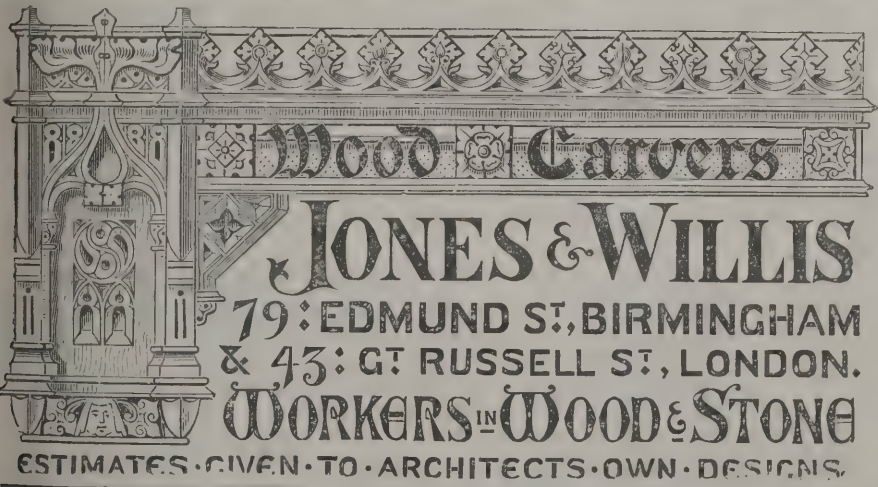 Wood Carvers
JONES & WILLIS
79: EDMUND ST., BIRMINGHAM
& 43: GT RUSSELL ST., LONDON.
WORKERS IN WOOD & STONE
ESTIMATES · GIVEN · TO · ARCHITECTS · OWN · DESIGNS.